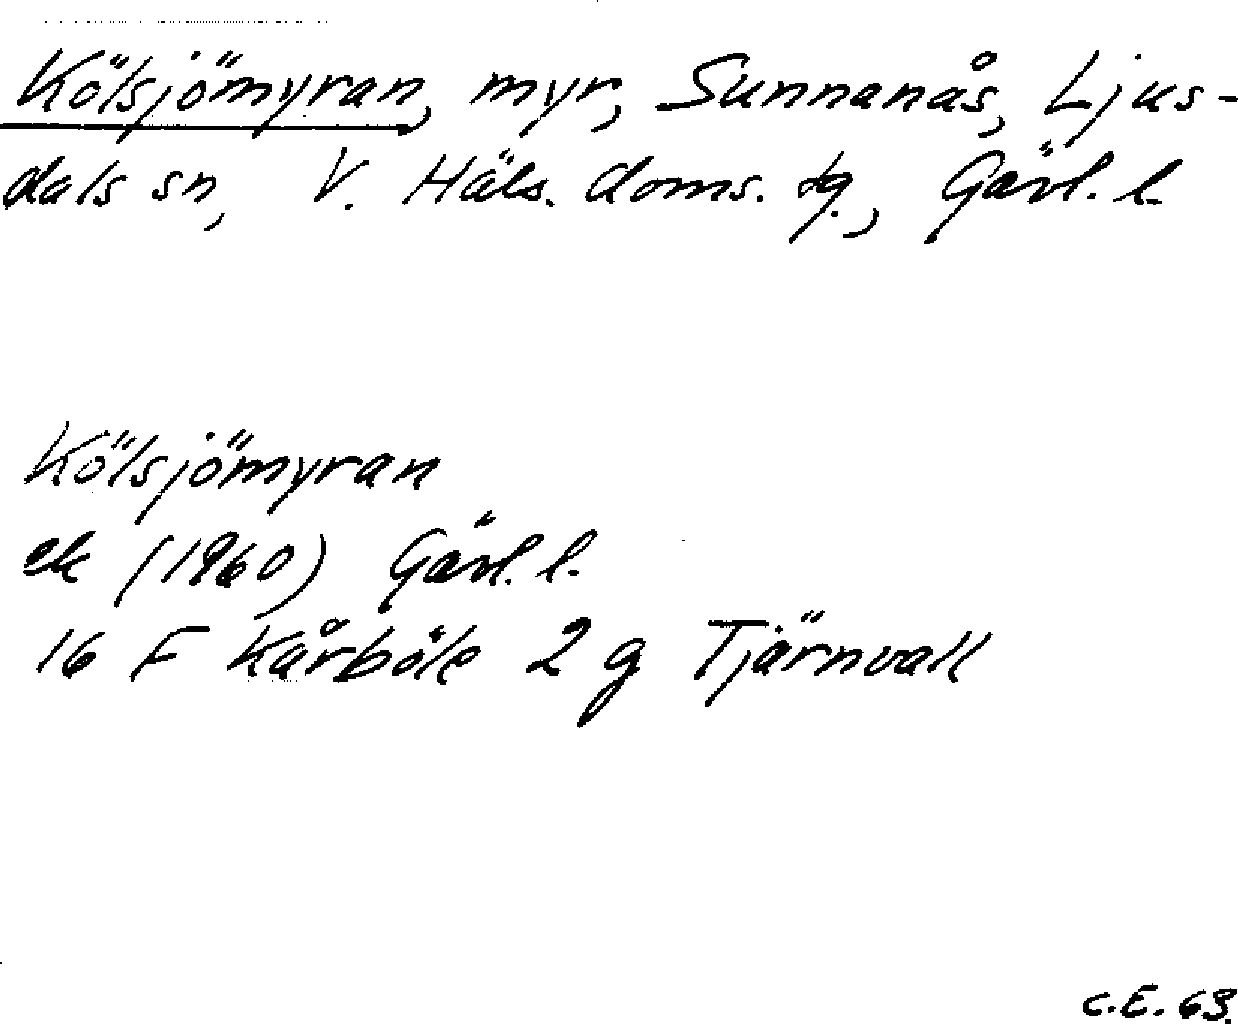 Kölsjömyran, myr, Sunnanås, Ljus-
dals sn, V. Häls. doms. tg., Gävl. l.
Kölsjömyran
ek (1960) Gävl. l.
16 F Kårböle 2 g Tjärnvall
C.E. 63.